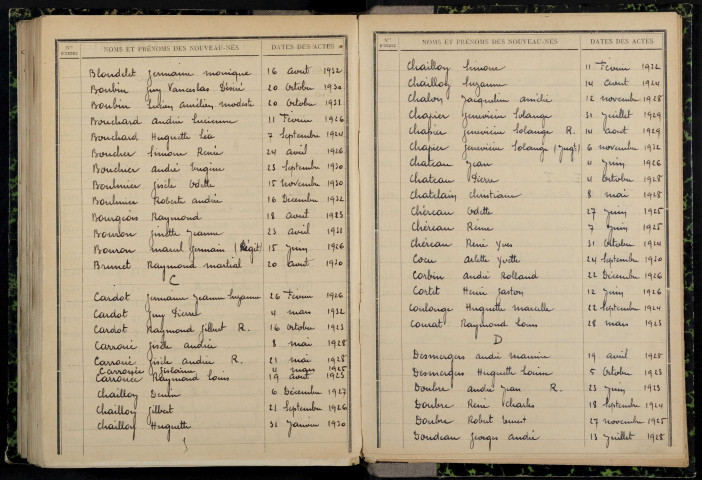 Nos D'ORDRE NOMS ET PRÉNOMS DES NOUVEAU-NÉS DATES DES ACTES
Blondelet Germaine Monique 16 août 1932
Bonbin Guy Vanceslas Désiré 20 octobre 1930
Bonbin Lucien Amélien modeste 20 octobre 1931
Bouchard André Lucienne 11 Février 1926
Bouchard Huguette Léa 7 Septembre 1924
Boucher Simone Renée 24 avril 1926
Boucher André Eugène 23 Septembre 1930
Boulmier Gisèle Odette 15 novembre 1930
Boulmier Roberte André 16 Décembre 1932
Bourgeois Raymond 18 août 1923
Bourbon Ginette Jeanne 23 avril 1931
Bouron Marcel Germain 15 juin 1926
Brunet Raymond Martial 20 août 1930
C
Cardot Germaine Jeanne Suzanne 26 Février 1926
Cardot Guy Pierre 4 mars 1932
Cardot Raymond Gilbert R. 16 octobre 1923
Carroué Gisèle André 8 mai 1928
Carroué Gisèle Andrée R. 21 mai 1928
Carrouée Gislaine 4 mars 1925
Carrouée Raymond Louis 19 août 1923
Chailloy Denise 6 Décembre 1927
Chailloy Gilbert 21 Septembre 1926
Chailloy Huguette 31 Janvier 1930
Nos D'ORDRE NOMS ET PRÉNOMS DES NOUVEAU-NÉS DATES DES ACTES
Chailloy Simone 11 Février 1932
Chailloy Suzanne 14 août 1924
Chalon Jacqueline Amélie 12 novembre 1928
Chapier Geneviève Solange 31 juillet 1929
Chapier Geneviève Solange R. 14 août 1929
Chapier Geneviève Solange (Jugt) 6 novembre 1932
Chateau Jean 4 juin 1926
Chateau Pierre 4 octobre 1928
Chatelain Christiane 8 mai 1928
Chéreau Odette 27 juin 1925
Chéreau Reine 7 juin 1925
Chéreau René Yves 31 octobre 1924
Cocu Arlette Yvette 24 Septembre 1930
Corbin André Rolland 22 Décembre 1926
Cortet Henri Gaston 12 juin 1926
Coulonge Huguette Marcelle 22 Septembre 1924
Courat Raymond Louis 28 mars 1923
D
Desmergers André Maurice 19 avril 1928
Desmergers Huguette Louise 5 octobre 1923
Doubre André Jean R. 23 juin 1923
Doubre René Charles 18 Septembre 1924
Doubre Robert Ernest 27 novembre 1925
Doudeau Georges André 13 juillet 1928